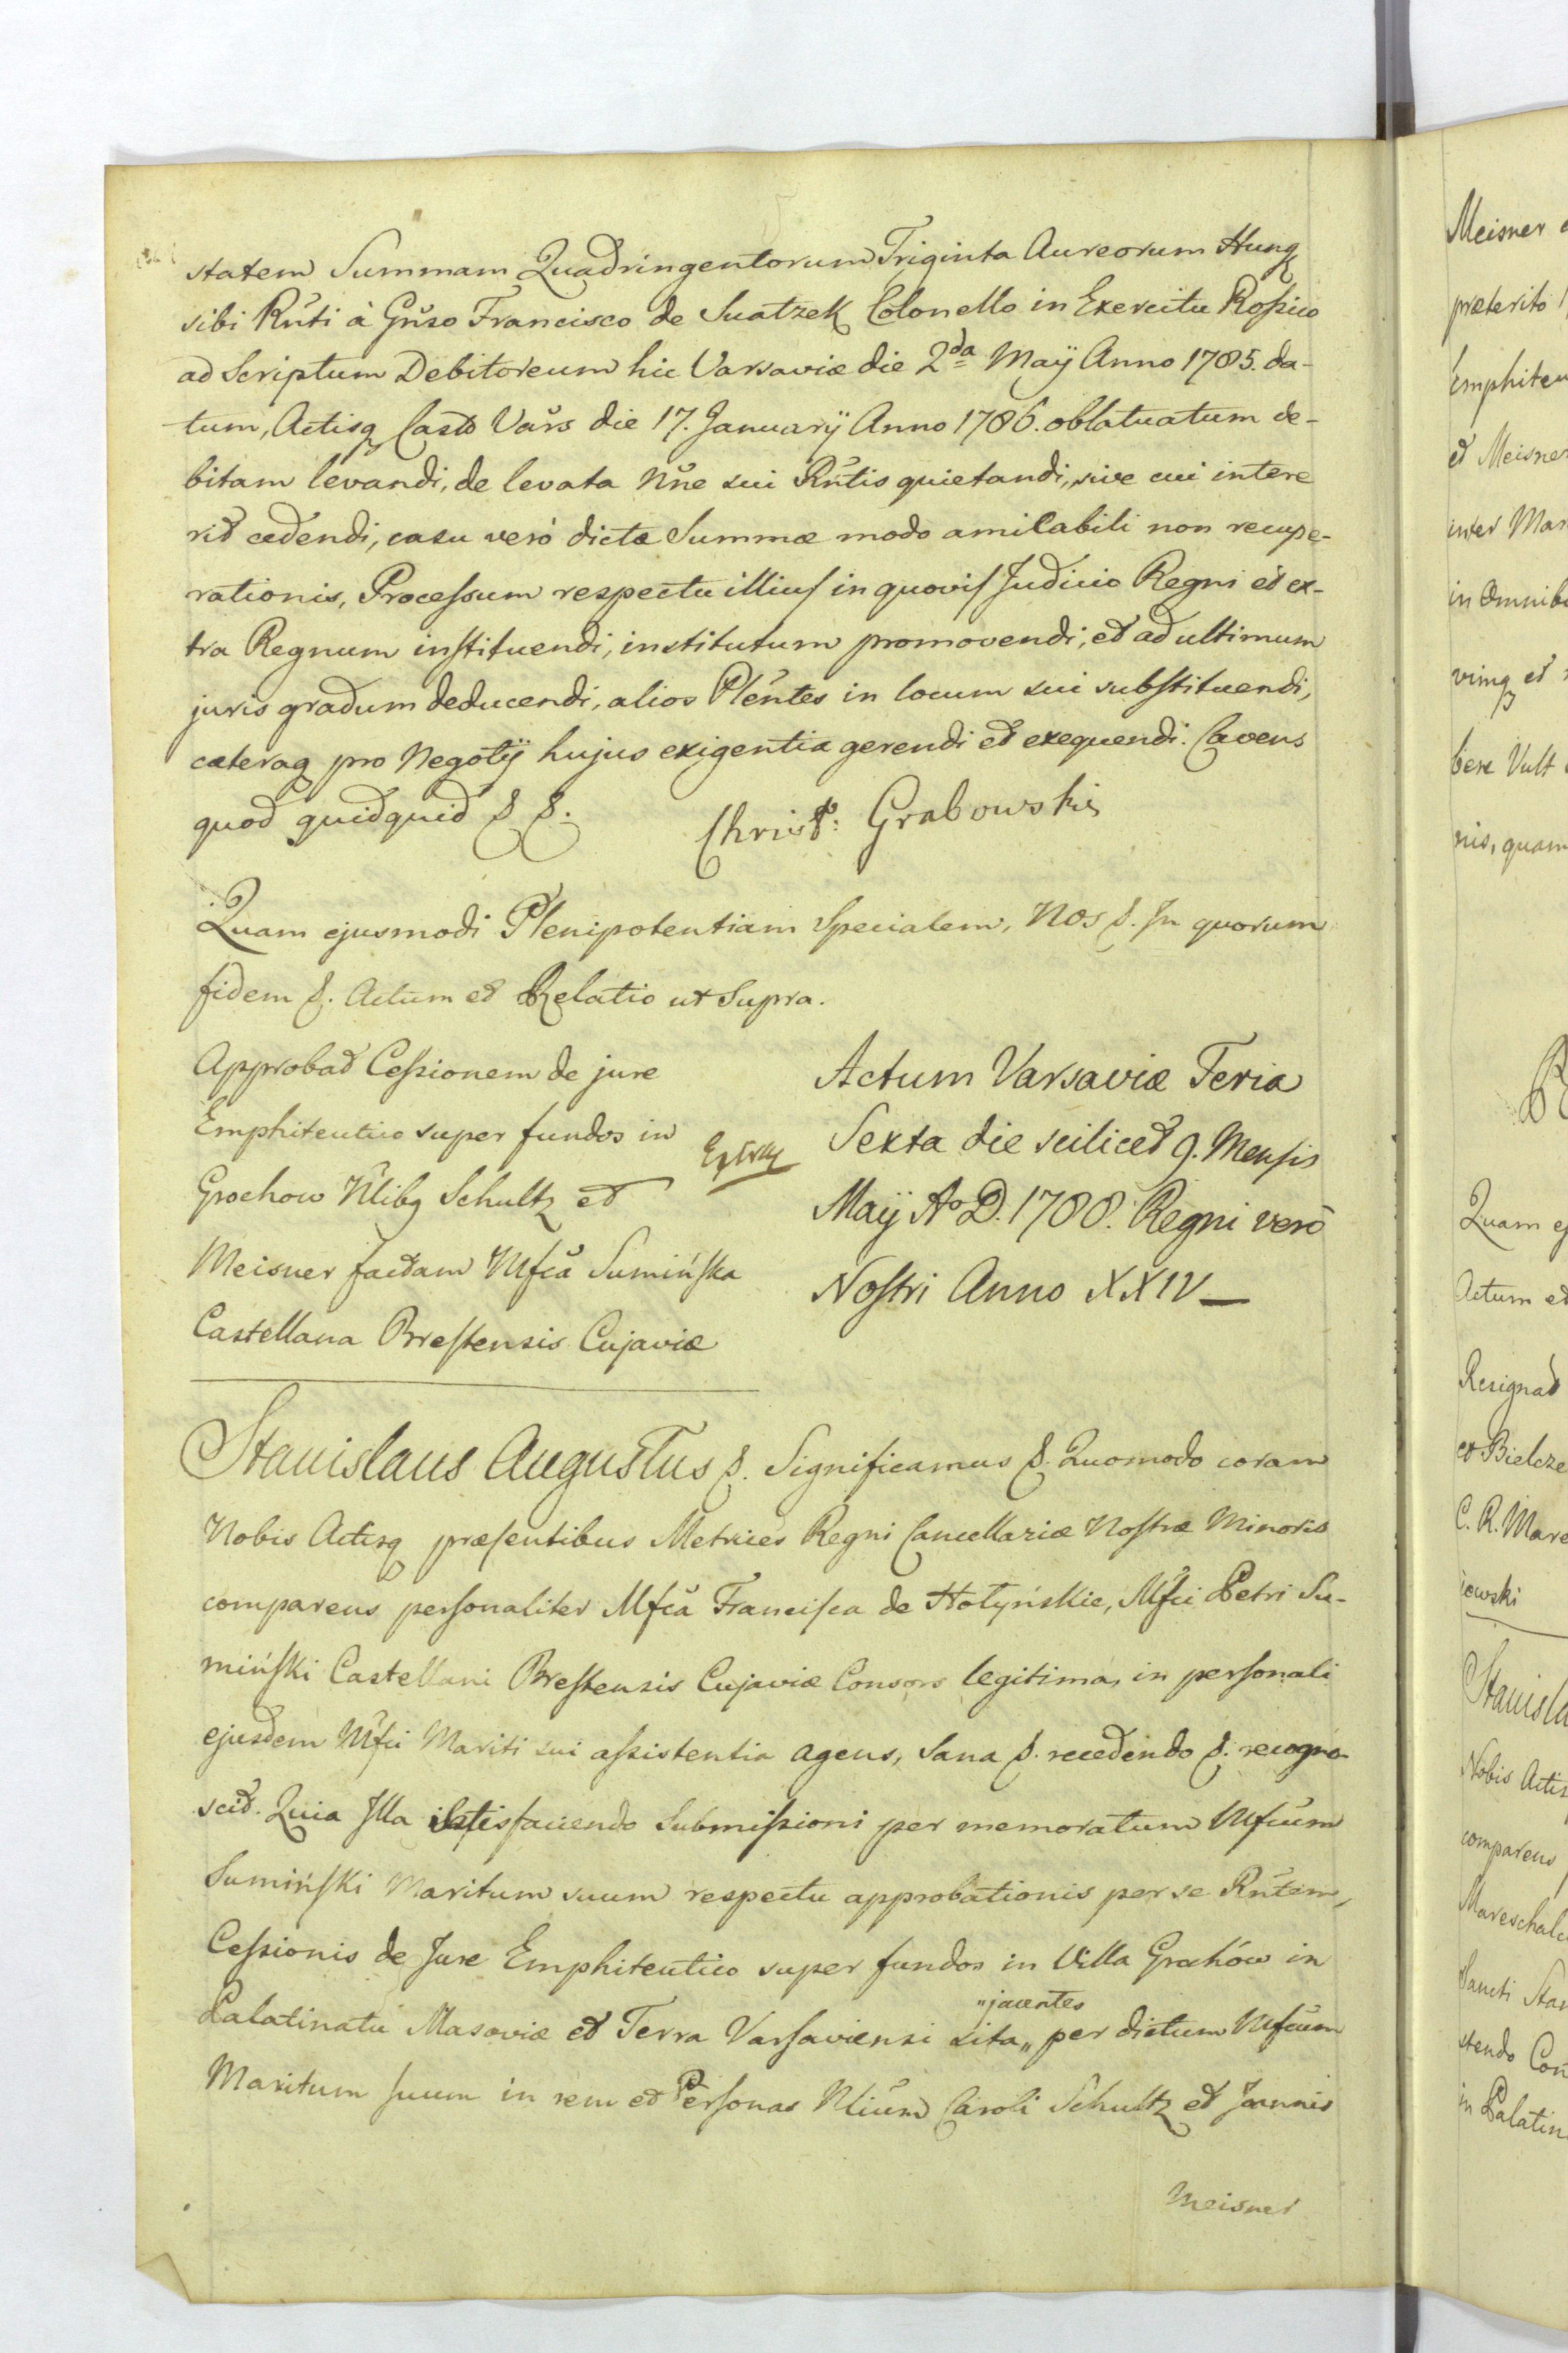 statem Summam Quadringentorum Triginta Aureorum Hung
sibi Rñti à Gñso Francisco de Suatzek Colonello in Exercitu Rossico
ad Scriptum Debitoreum hic Varsaviæ die 2da Maÿ Anno 1785. da-
tum, Actisq Casto Vars die 17. Januarÿ Anno 1786. oblatuatum de-
bitam levandi, de levata Nñe sui Rñtis quietandi, sive cui intere
rit cedendi, casu verò dictæ Summæ modo amicabili non recupe-
rationis, Processum respectu illius in quovis Judicio Regni et ex-
tra Regnum instituendi, institutum promovendi, et ad ultimum
juris gradum deducendi, alios Plentes in locum sui substituendi,
cæteraq pro Negotÿ hujus exigentia gerendi et exequendi. Cavens
quod quidquid &. &.
Christ: Grabowski
Quam ejusmodi Plenipotentiam Specialem, Nos &. In quorum
fidem &. Actum et Relatio ut Supra.
Approbat Cessionem de jure
Emphiteutico super fundos in
Grochow Nlibq Schultz et
Meisner factam Mfca Sumińska
Castellana Brestensis Cujaviæ
Actum Varsaviæ Feria
Sexta die scilicet 9. Mensis
Maÿ Ao D. 1788. Regni verò
Nostri Anno XXIV
Stanislaus Augustus &. Significamus &. Quomodo coram
Nobis Actisq præsentibus Metrices Regni Cancellariæ Nostræ Minoris
comparens personaliter Mfca Francisca de Hołyńskie, Mfci Petri Su-
miński Castellani Brestensis Cujaviæ Consors legitima, in personali
ejusdem Mfci Mariti sui assistentia agens, Sana &. recedendo &. recogno-
scit. Quia Illa Satisfaciendo Submissioni per memoratum Mfcum
Sumiński Maritum suum respectu approbationis per se Rñtem,
Cessionis de Jure Emphiteutico super fundos in Villa Grochów in
Palatinatu Masoviæ et Terra Varsaviensi sita „ jacentes „ per dictum Mfcum
Maritum suum in rem et Personas Nlium Caroli Schultz et Joannis
Meisner
Meisner
præterito
Emphiteu
et Meisner
inter Mar
in omnib
vimq et
bere Vult
nis, quam
Quam ej
Actum et
Resignat
et Bielcze
C. R. Mare
iowski
Stanisla
Nobis Acti
comparens
Mareschal
Sancti Sta
stendo Con
in Palatin